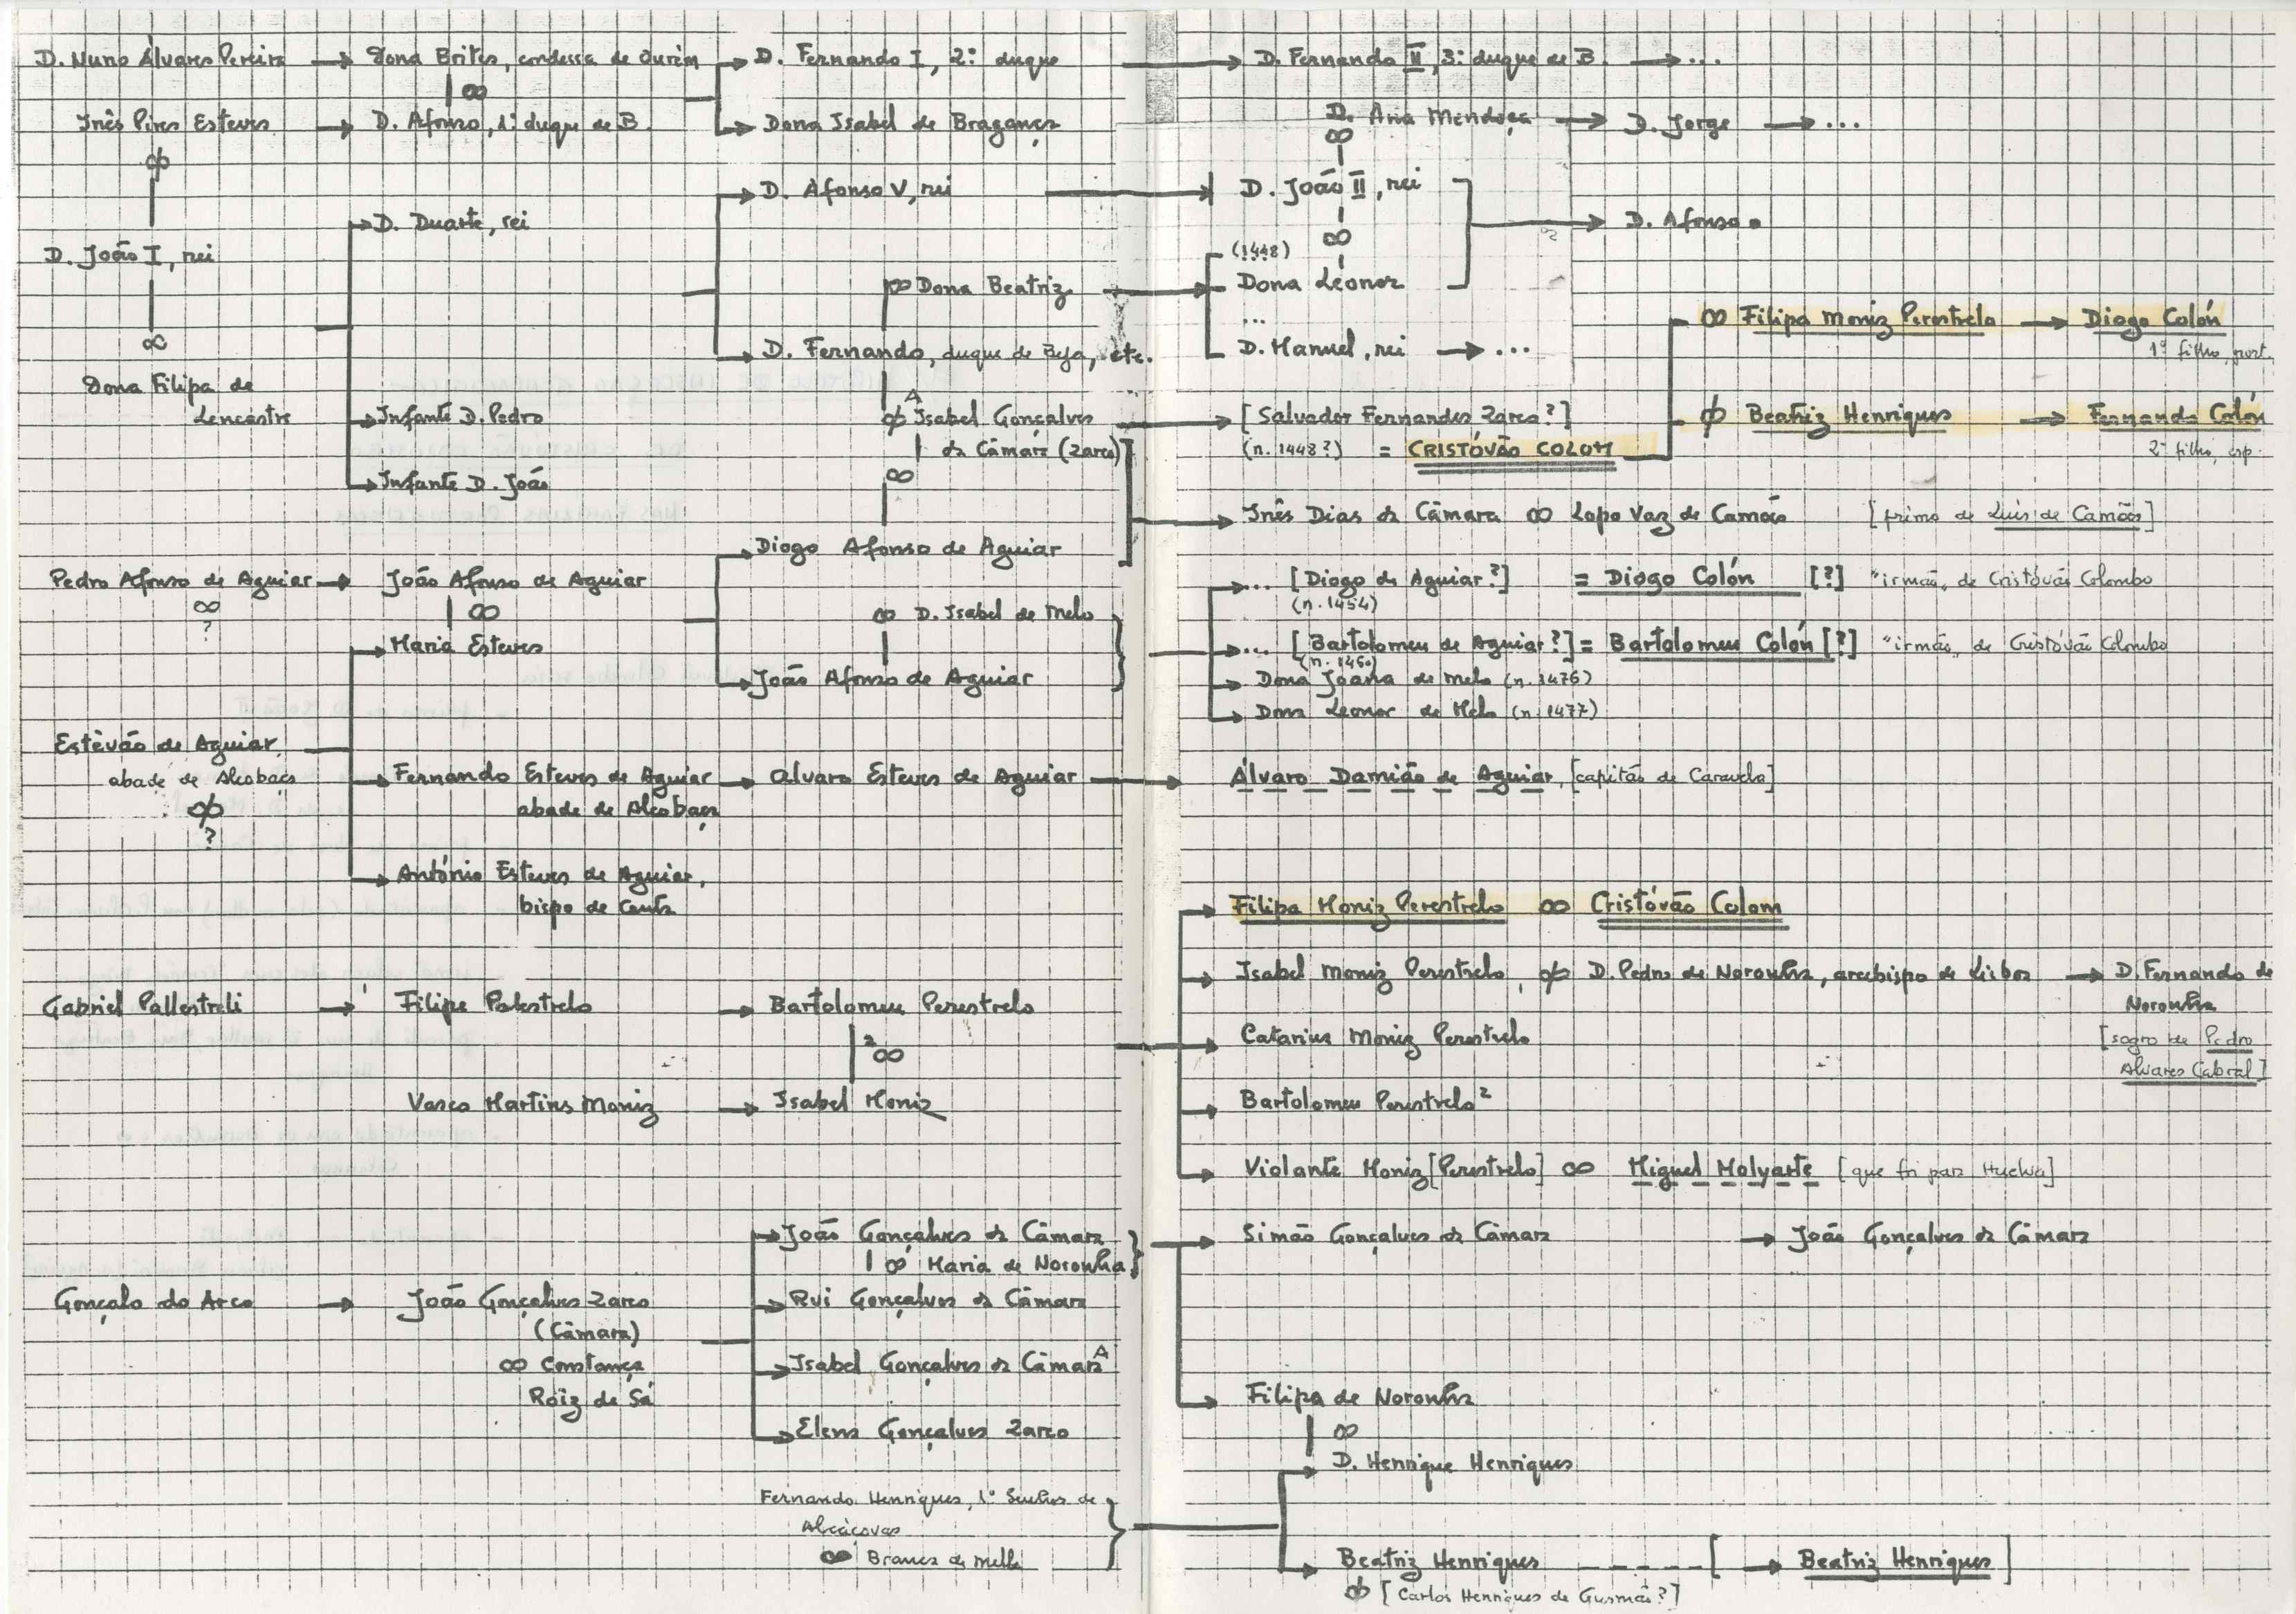 D. Nuno Álvares Pereira → Dona Brites, condessa de Ourém → D. Fernando I, 2º duque → D. Fernando II, 3º duque de B. → ...
∞
Inês Pires Esteves → D. Afonso, 1º duque de B. → Dona Isabel de Bragança
D. Ana Mendoça → D. Jorge → ...
∞
D. Afonso V, rei → D. João II, rei
D. Duarte, rei
D. Afonso
D. João I, rei
∞
(1448)
∞ Dona Beatriz → Dona Leonor
...
∞ Filipa Moniz Perestrelo → Diogo Colón
1º filho, port.
∞
D. Fernando, duque de Beja, etc.
D. Manuel, rei → ...
Dona Filipa de
Lencastre
Infante D. Pedro
A
Isabel Gonçalves → [Salvador Fernandes Zarco?]
Beatriz Henriques → Fernando Colón
da Câmara (Zarco)
(n. 1448?) = CRISTÓVÃO COLOM
2º filho, esp.
∞
Infante D. João
Inês Dias da Câmara ∞ Lopo Vaz de Camões [primo de Luís de Camões]
Diogo Afonso de Aguiar
Pedro Afonso de Aguiar → João Afonso de Aguiar
... [Diogo de Aguiar?] = Diogo Colón [?] "irmão" de Cristóvão Colombo
(n. 1454)
∞
?
∞
∞ D. Isabel de Melo
Maria Esteves
... [Bartolomeu de Aguiar?] = Bartolomeu Colón [?] "irmão" de Cristóvão Colombo
João Afonso de Aguiar
Dona Joana de Melo (n. 1476)
Dona Leonor de Melo (n. 1477)
Estêvão de Aguiar,
abade de Alcobaça
?
Fernando Esteves de Aguiar → Alvaro Esteves de Aguiar → Álvaro Damião de Aguiar, [capitão de Caravela]
abade de Alcobaça
António Esteves de Aguiar,
bispo de Ceuta
Filipa Moniz Perestrelo ∞ Cristóvão Colom
Isabel Moniz Perestrelo, D. Pedro de Noronha, arcebispo de Lisboa → D. Fernando de
Noronha
[sogro de Pedro
Alvares Cabral]
Gabriel Pallestreli → Filipe Palestrelo → Bartolomeu Perestrelo
2 ∞
Catarina Moniz Perestrelo
Vasco Martins Moniz → Isabel Moniz
Bartolomeu Perestrelo 2
Violante Moniz [Perestrelo] ∞ Miguel Molyarte [que foi para Huelva]
João Gonçalves da Câmara
∞ Maria de Noronha
Simão Gonçalves da Câmara → João Gonçalves da Câmara
Gonçalo do Arco → João Gonçalves Zarco
(Câmara)
∞ Constança
Roiz de Sá
Rui Gonçalves da Câmara
Isabel Gonçalves da Câmara A
Elena Gonçalves Zarco
Filipa de Noronha
∞
D. Henrique Henriques
Fernando Henriques, 1º Senhor de
Alcáçovas
∞ Branca de Mello
Beatriz Henriques ---- [ → Beatriz Henriques ]
[Carlos Henriques de Gusmão?]